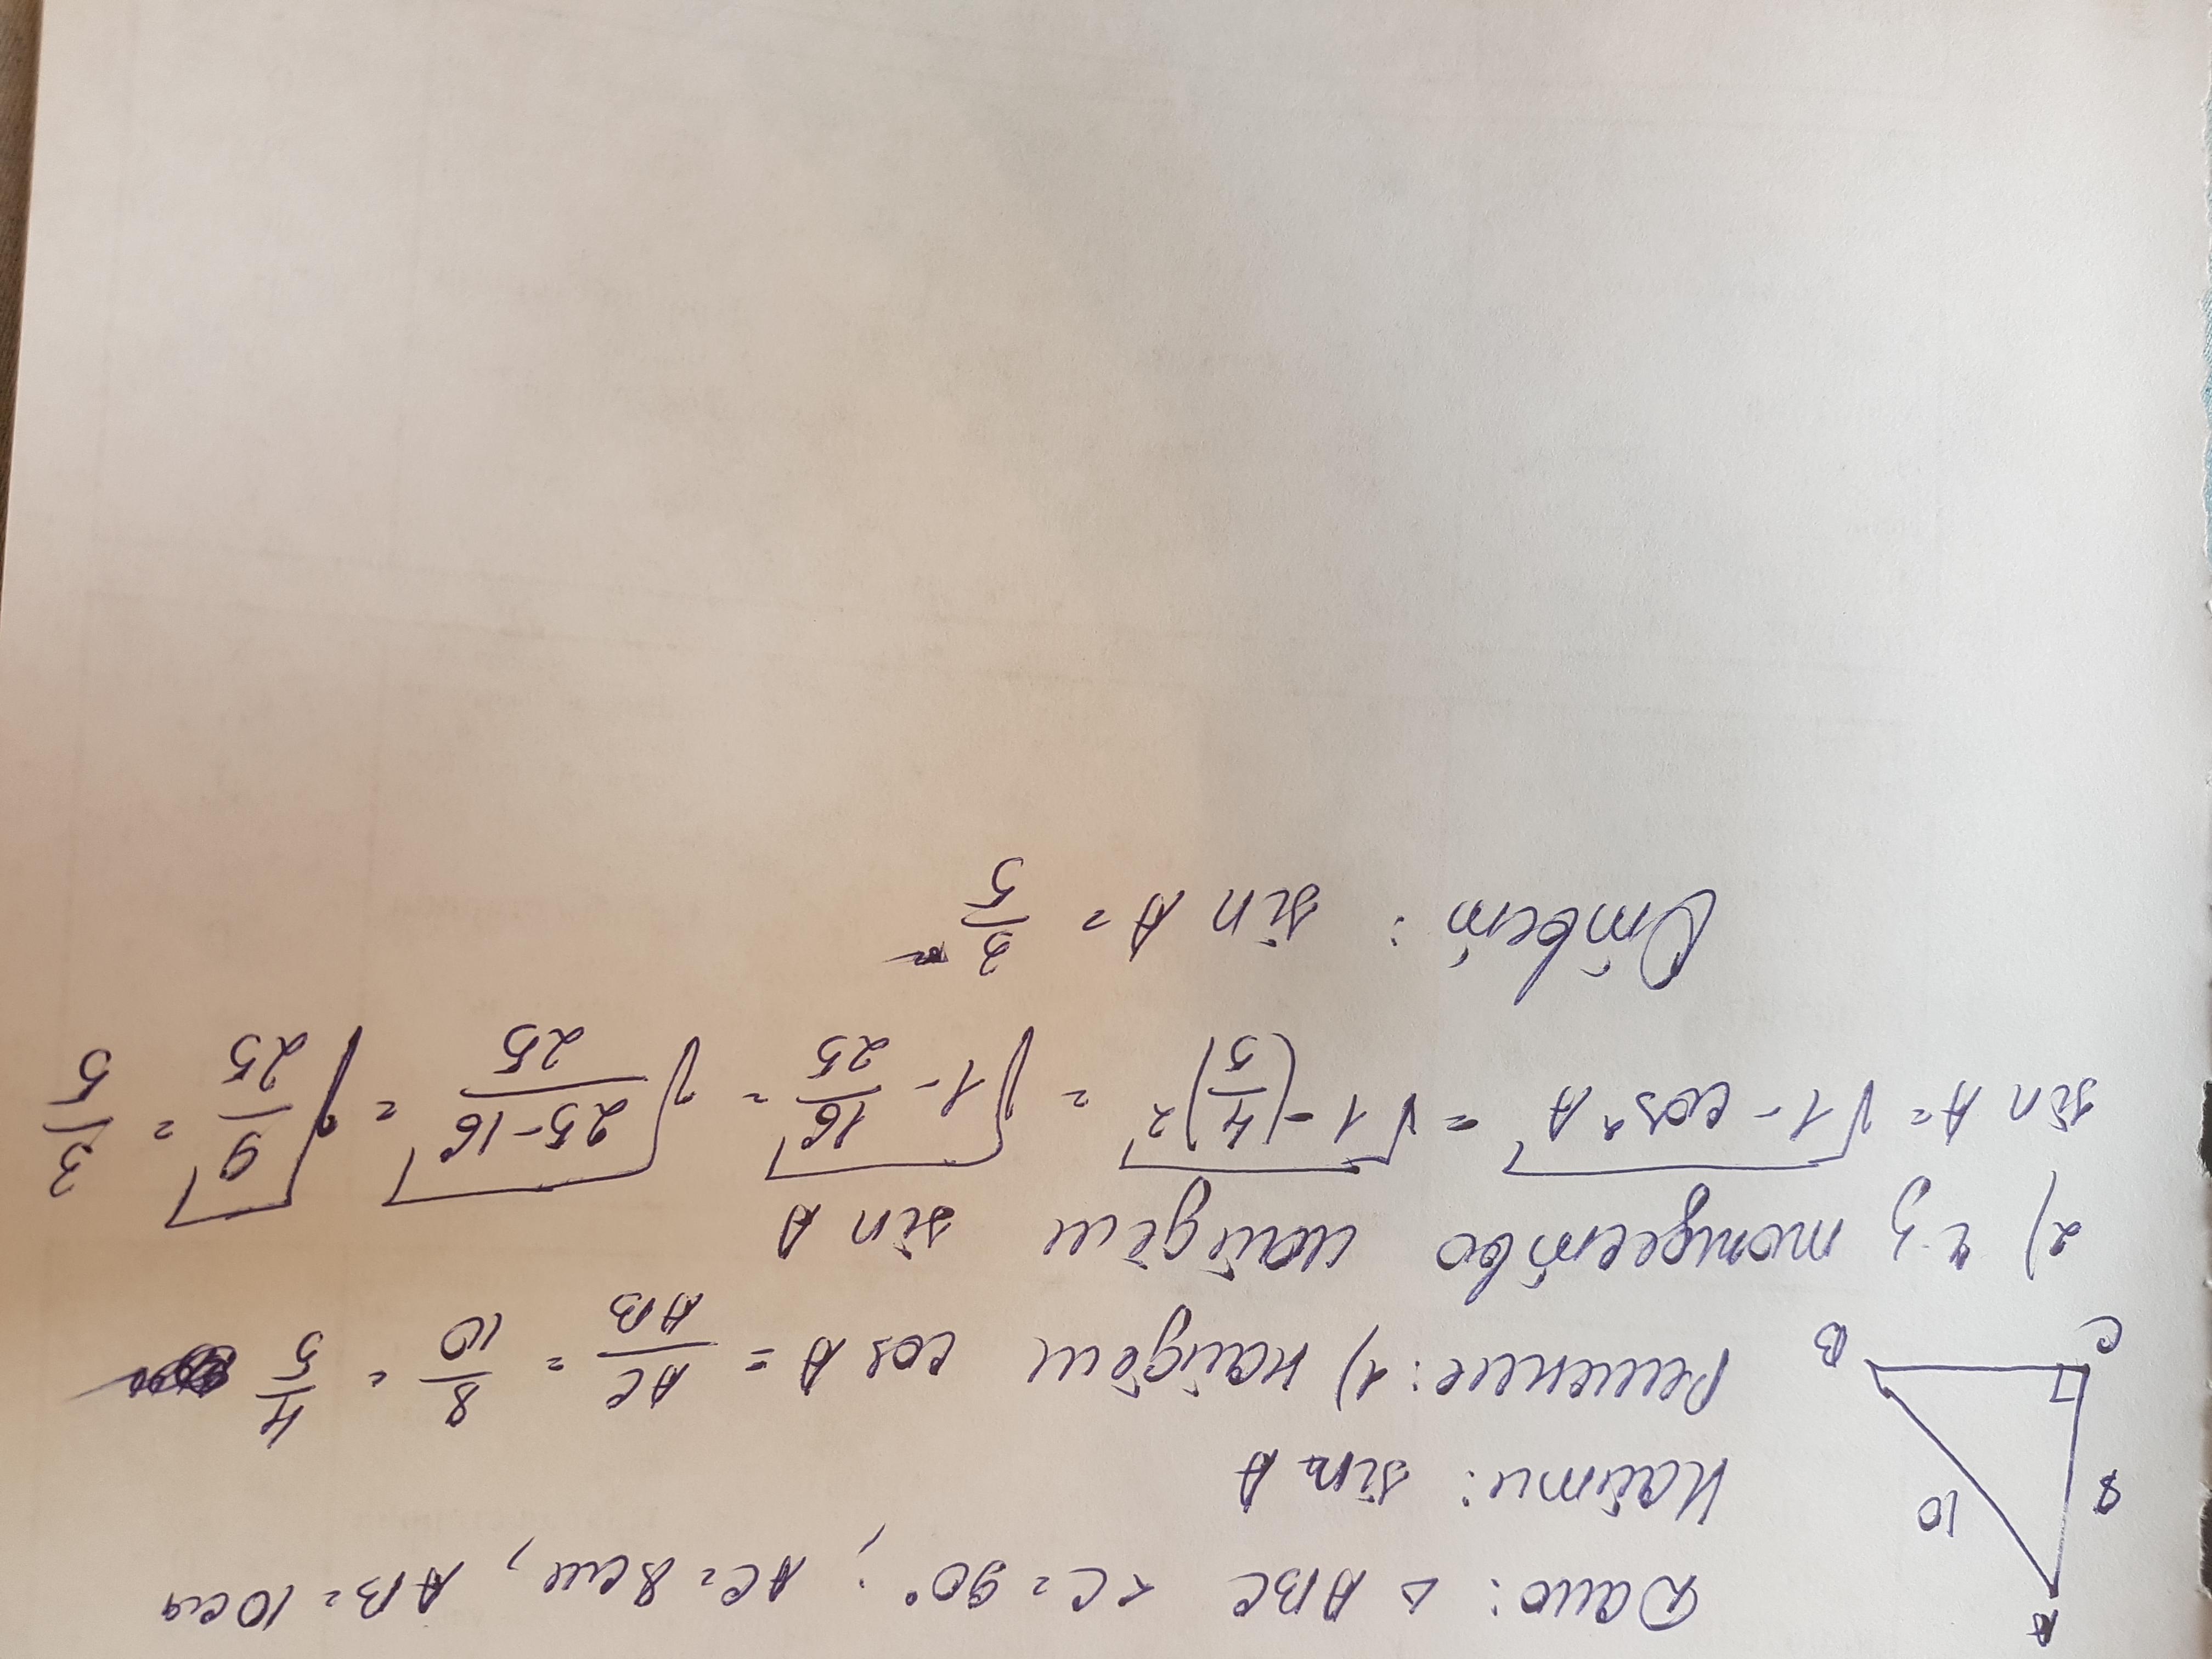 A
8
10
C
B
Дано: △ ABC <C = 90°; AC = 8см, AB = 10см
Найти: sin A
Решение: 1) найдём cos A = AC/AB = 8/10 = 4/5
2) ч.з тождество найдём sin A
sin A = √1 - cos²A = √1 - (4/5)² = √1 - 16/25 = √25-16/25 = √9/25 = 3/5
Ответ: sin A = 3/5